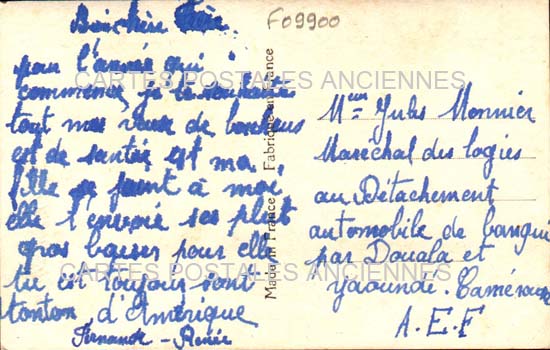 F09900
Bien chère
pour l'année qui
commence je te souhaite
tout mes vœux de bonheur
et de santée et ma
fille se joint à moi
elle t'envoie ses plus
gros baisers pour elle
tu est toujours sont
tonton d'Amérique
Fernande - Renée
CARTES POSTALES ANCIENNES
CARTES POSTALES ANCIENNES
Made in France Fabriqué en France
Mr Jules Monnier
Maréchal des logies
au Détachement
automobile de bangui
par Douala et
Yaoundé. Caméroun
A.E.F